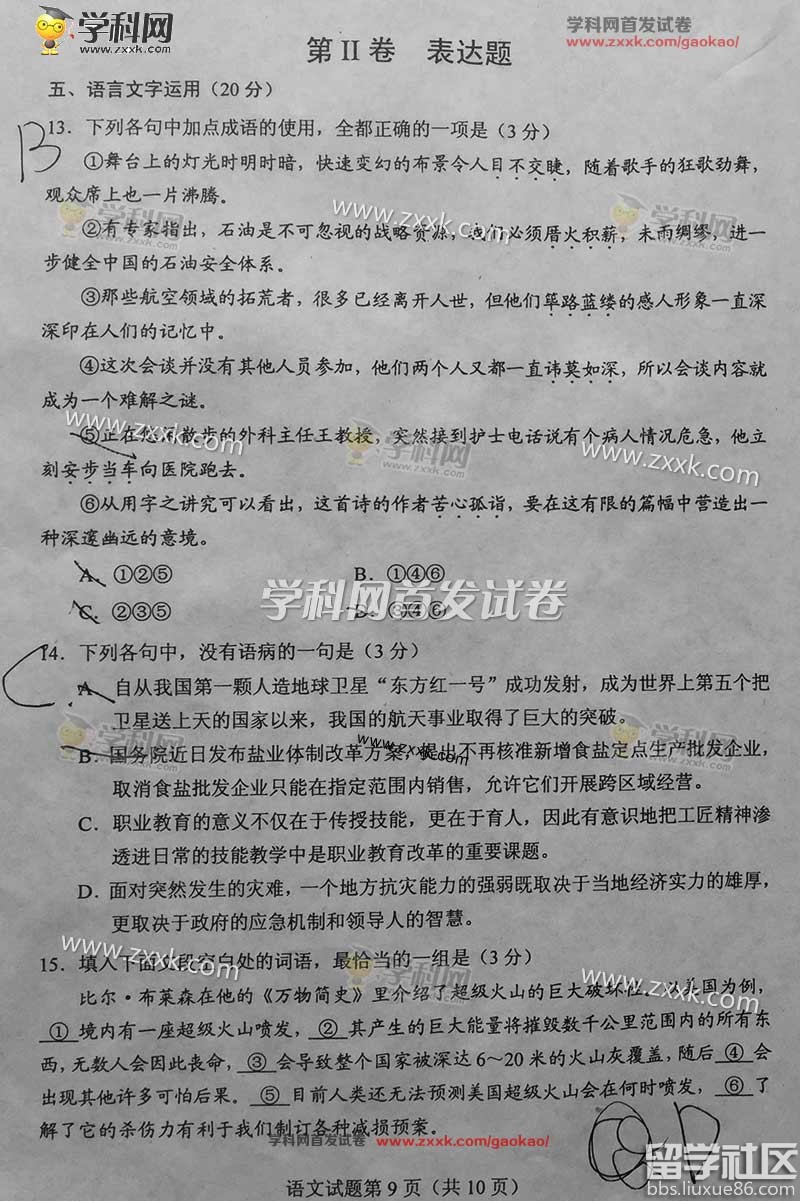 学科网
www.zxxk.com
学科网首发试卷
www.zxxk.com/gaokao/
第 II 卷 表达题
五、语言文字运用(20 分)
B
13. 下列各句中加点成语的使用,全都正确的一项是(3 分)
①舞台上的灯光时明时暗,快速变幻的布景令人目不交睫,随着歌手的狂歌劲舞,
观众席上也一片沸腾。
②有专家指出,石油是不可忽视的战略资源,我们必须厝火积薪,未雨绸缪,进一
步健全中国的石油安全体系。
③那些航空领域的拓荒者,很多已经离开人世,但他们筚路蓝缕的感人形象一直深
深印在人们的记忆中。
④这次会谈并没有其他人员参加,他们两个人又都一直讳莫如深,所以会谈内容就
成为一个难解之谜。
⑤正在悠闲散步的外科主任王教授,突然接到护士电话说有个病人情况危急,他立
刻安步当车向医院跑去。
⑥从用字之讲究可以看出,这首诗的作者苦心孤诣,要在这有限的篇幅中营造出一
种深邃幽远的意境。
A. ①②⑤ B. ①④⑥
C. ②③⑤ D. ③④⑥
学科网首发试卷
C
14. 下列各句中,没有语病的一句是(3 分)
A. 自从我国第一颗人造地球卫星“东方红一号”成功发射,成为世界上第五个把
卫星送上天的国家以来,我国的航天事业取得了巨大的突破。
B. 国务院近日发布盐业体制改革方案,提出不再核准新增食盐定点生产批发企业,
取消食盐批发企业只能在指定范围内销售,允许它们开展跨区域经营。
C. 职业教育的意义不仅在于传授技能,更在于育人,因此有意识地把工匠精神渗
透进日常的技能教学中是职业教育改革的重要课题。
D. 面对突然发生的灾难,一个地方抗灾能力的强弱既取决于当地经济实力的雄厚,
更取决于政府的应急机制和领导人的智慧。
15. 填入下面文段空白处的词语,最恰当的一组是(3 分)
比尔·布莱森在他的《万物简史》里介绍了超级火山的巨大破坏性。以美国为例,
① 境内有一座超级火山喷发, ② 其产生的巨大能量将摧毁数千公里范围内的所有东
西,无数人会因此丧命, ③ 会导致整个国家被深达 6~20 米的火山灰覆盖,随后 ④ 会
出现其他许多可怕后果。 ⑤ 目前人类还无法预测美国超级火山会在何时喷发, ⑥ 了
解了它的杀伤力有利于我们制订各种减损预案。
学科网首发试卷 www.zxxk.com/gaokao/
语文试题第 9 页(共 10 页)
留学社区
bbs.liuxue86.com